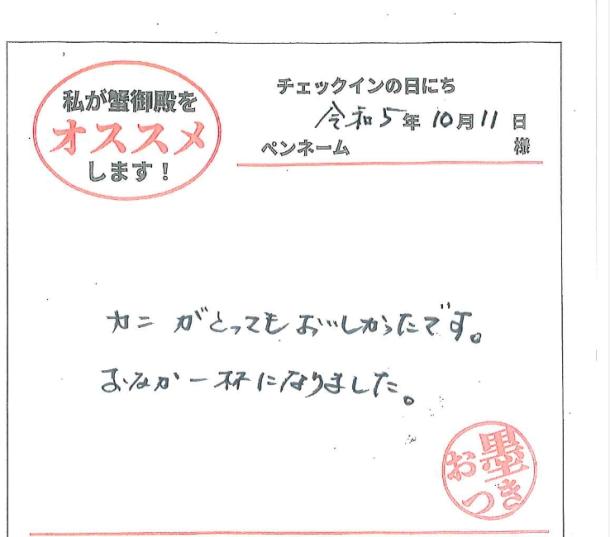 私が蟹御殿を
オススメ
します！
チェックインの日にち
令和5年10月11日
ペンネーム 様
カニがとってもおいしかったです。
おなか一杯になりました。
お墨
つき